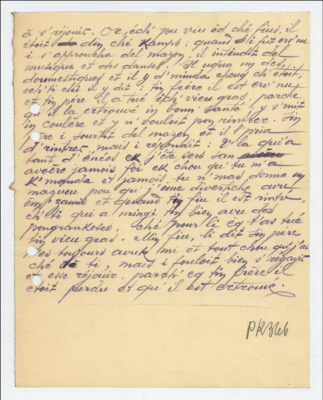 à s'réjouir. Or, éch' pu viu éd ché fius, il
étoit din ché kamps; quand i fut ervnu
i s'approcha del mazon, il intindit del
musique et des danses. Il uqua un des
doumestiques et il y d'minda chouq ch'étoit,
ech'ti chi il y dit: Tin frère il est ervnu
et tin père il a tué ech vieu gras, parche
qu'il l'a ertrouvé in bonn' santé; y s'mit
in coulère et y n'vouloit pon rintrer. Sin
père i sourtit del mazon et il l'pria
d'rintrer, mais i répondit: V'là qu'i a
tant d'énées ej t'ser san
avoère jamois foi ech chou qui tu m'a
k'mandé et jamois tu n'mas donné un
maguet pou qu' j'eme divertiche avec
em's amis et quand tin fiu il est rintré,
ch'ti qui a mingé tin bien avec des
pongrankoles, ché pour li eq t'as tué
tin vieu gras. Min fiu, li dit sin père
t'es toujours avuc mi et tout chou qu'j'ai
ché à ti, mais i fouloit bien s'régayer
et esse réjouir, parch' eq tin frère i
étoit perdu et qu'il est ertrouvé.
PR366